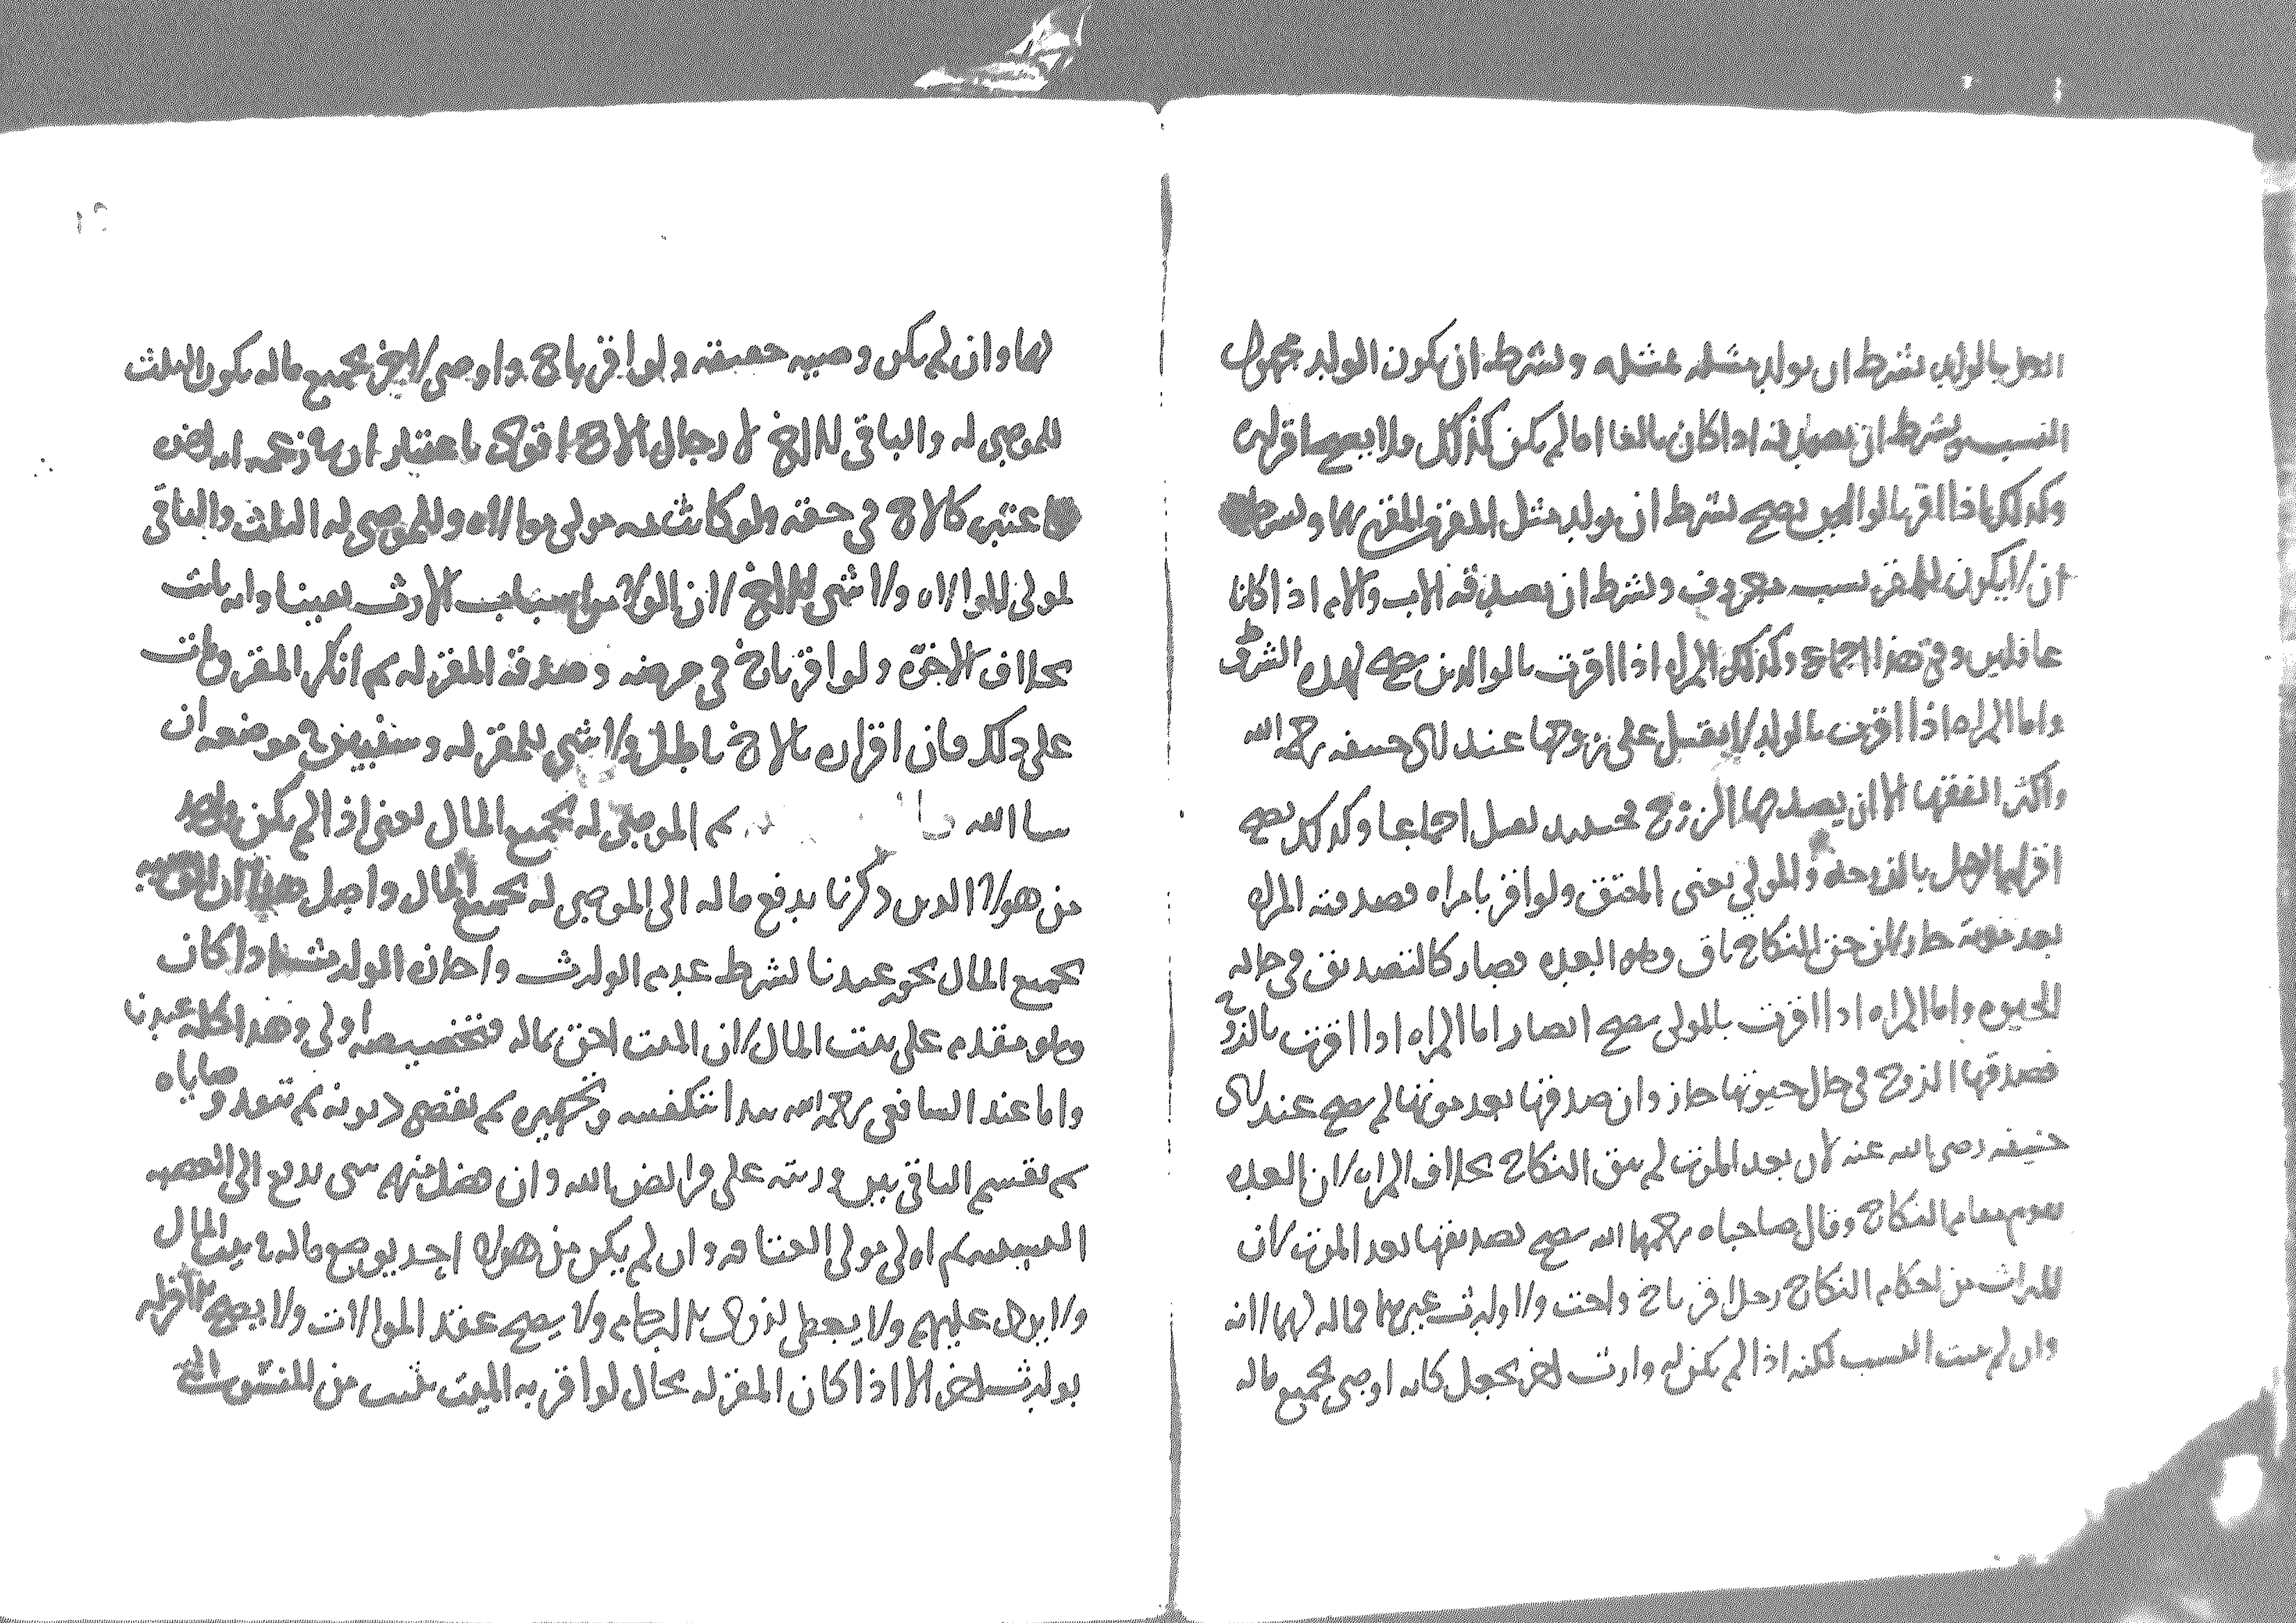 الرجل بالولد بشرط ان يولد مثله لمثله وبشرط ان يكون الولد مجهول
النسب وبشرط ان يصدقه اذا كان بالغا اما لم يكن كذلك ولا يصح اقراره
وكذلك اذا اقر بالوالدين يصح بشرط ان يولد مثل المقر للمقر بهما وبشرط
ان لا يكون للمقر نسب معروف وبشرط ان يصدقه الاب والام اذا كانا
عاقلين وفي هذا اجماع وكذلك المراه اذا اقرت بالوالدين يصح لهذه الشرط
واما المراه اذا اقرت بالولد لا يقبل على زوجها عند ابي حنيفه رحمه الله
واكثر الفقها الا ان يصدقها الزوج فحينيذ يقبل اجماعا وكذلك يصح
اقرار الرجل بالزوجة وللمولى يعنى المعتق ولو اقر بامراه فصدقته المراه
بعد موته جاز لان حق النكاح باق وهو العده فصار كالتصديق في حاله
الحيوه واما المراه اذا اقرت بالمولى يصح ايضا واما المراه اذا اقرت بالزوج
فصدقها الزوج في حال حيوتها جاز وان صدقها بعد موتها لم يصح عند ابي
حنيفه رضى الله عنه لان بعد الموت لم يبق النكاح بخلاف المراه لان العده
يقوم مقام النكاح وقال صاحباه رحمهما الله يصح تصديقها بعد الموت لان
الميراث من احكام النكاح رجل اقر باخ واخت ولا وارث غيرهما فماله لهما لانه
وان لم يثبت النسب لكنه اذا لم يكن له وارث اخر يجعل كانه اوصى بجميع ماله
١٢
لهما وان لم يكن وصيه حقيقه ولو اقر باخ واوصى لاخر بجميع ماله يكون الثلث
للموصى له والباقي للاخ لا رجال الاخ اقوى باعتبار ان في زعمه انه
اعتبر كالاخ في حقه ولو كانت له مولى موالاه وللموصى له الثلث والباقي
لمولى الموالاه ولا شى للاخ لان الولا من اسباب الارث يقينا وانه ثابت
بخلاف الاخوة ولو اقر باخ في مرضه وصدقه المقر له ثم انكر المقر ومات
على ذلك فان اقراره بالاخ باطل ولا شى للمقر له وسنبين في موضعه ان
شا الله ثم الموصى له بجميع المال يعنى اذا لم يكن واحد
من هولا الذين ذكرنا يدفع ماله الى الموصى له بجميع المال واصل هذا ان الوصيه
بجميع المال يجوز عندنا بشرط عدم الوارث واجازه الوارث اذا كان
وهو مقدم على بيت المال لان الميت احق بماله فتخصيصه اولى وهذا كله عندنا
واما عند الشافعي رحمه الله يبدا بتكفينه وتجهيزه ثم يقضى ديونه ثم تنفد وصاياه
ثم يقسم الباقي بين ورثته على فرايض الله وان فضل منهم شى يدفع الى العصبه
النسبيه ثم الى مولى العتاقه وان لم يكن من هولاء احد يوضع ماله في بيت المال
ولا يرد عليهم ولا يعطى لذوى الارحام ولا يصح عقد الموالات ولا يصح الاقرار
بوارث اخر الا اذا كان المقر له بحال لو اقر به الميت يثبت من المقر